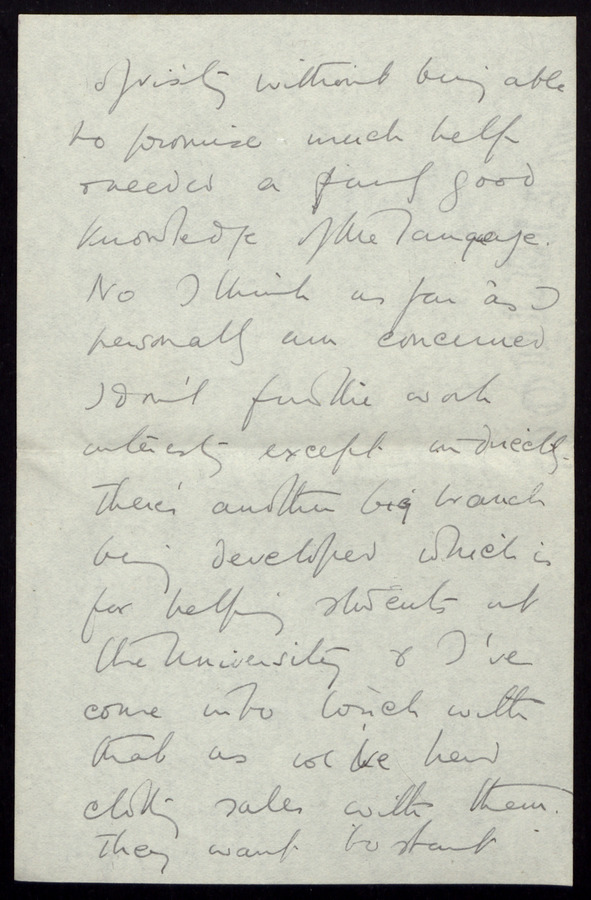 of visiting without being able
to promise much help
& needed a fairly good
knowledge of the language.
No I think as far as I
personally am concerned
I don't find the work
interesting except indirectly.
There's another big branch
being developed which is
for helping students at
the University & I've
come into touch with
that as we've had
clothing sales with them.
They want to start